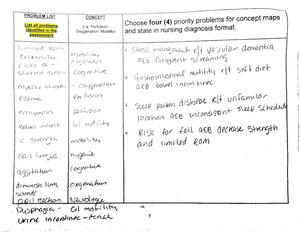 PROBLEM LIST
List all problems
identified in the
assessment
CONCEPT
(i.e. Perfusion,
Oxygenation, Mobility)
Choose four (4) priority problems for concept maps
and state in nursing diagnosis format.
limited Rom
mobility
slurred speech
cognitive
- oxygenation
Edema
perfusion
perfusion
Bowel incont
GI motility
< strength
mobility
nail fungus
hygiene
aggitation
cognitive
diminish lung
sounds
oxygenation
Neurologic
Dysphagia - GI motility
urine incontinence -
1. Stress management r/t vascular dementia
AEB frequent screaming
2. Gastrointestinal motility r/t soft diet
AEB bowel incontinence
3. Sleep pattern disturbe r/t unfamiliar
location AEB inconsistent sleep schedule
4. Risk for fall AEB decrease strength
and limited ROM
7